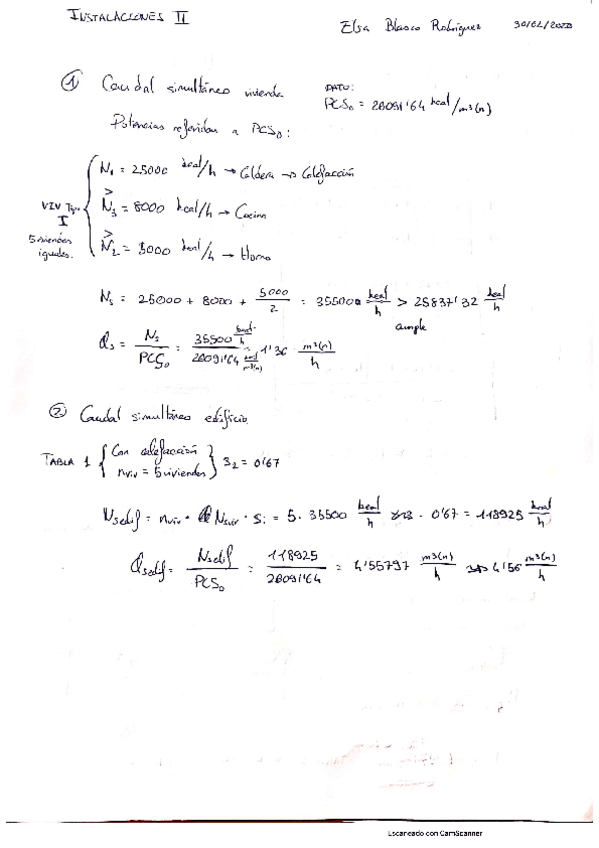 INSTALACIONES II
Elsa Blasco Rodríguez 30/02/2020
① Caudal simultáneo vivienda
DATO:
PCS₀ = 26091'64 kcal/m³(n)
Potencias referidas a PCS₀:
N₁ = 25000 kcal/h → Caldera → Calefacción
>
N₃ = 8000 kcal/h → Cocina
>
N₂ = 5000 kcal/h → Horno
VIV Tipo
I
5 viviendas
iguales.
Nₛ = 25000 + 8000 + 5000/2 = 35500 kcal/h > 25837'32 kcal/h
cumple
Qₛ = Nₛ/PCS₀ = 35500 kcal/h / 26091'64 kcal/m³(n) = 1'36 m³(n)/h
② Caudal simultáneo edificio
TABLA 1 { Con calefacción
nviv = 5 viviendas } S₂ = 0'67
Nsedif = nviv · Nsviv · Si = 5 · 35500 kcal/h · 0'67 = 118925 kcal/h
Qsedif = Nsedif/PCS₀ = 118925/26091'64 = 4'55797 m³(n)/h → 4'56 m³(n)/h
Escaneado con CamScanner